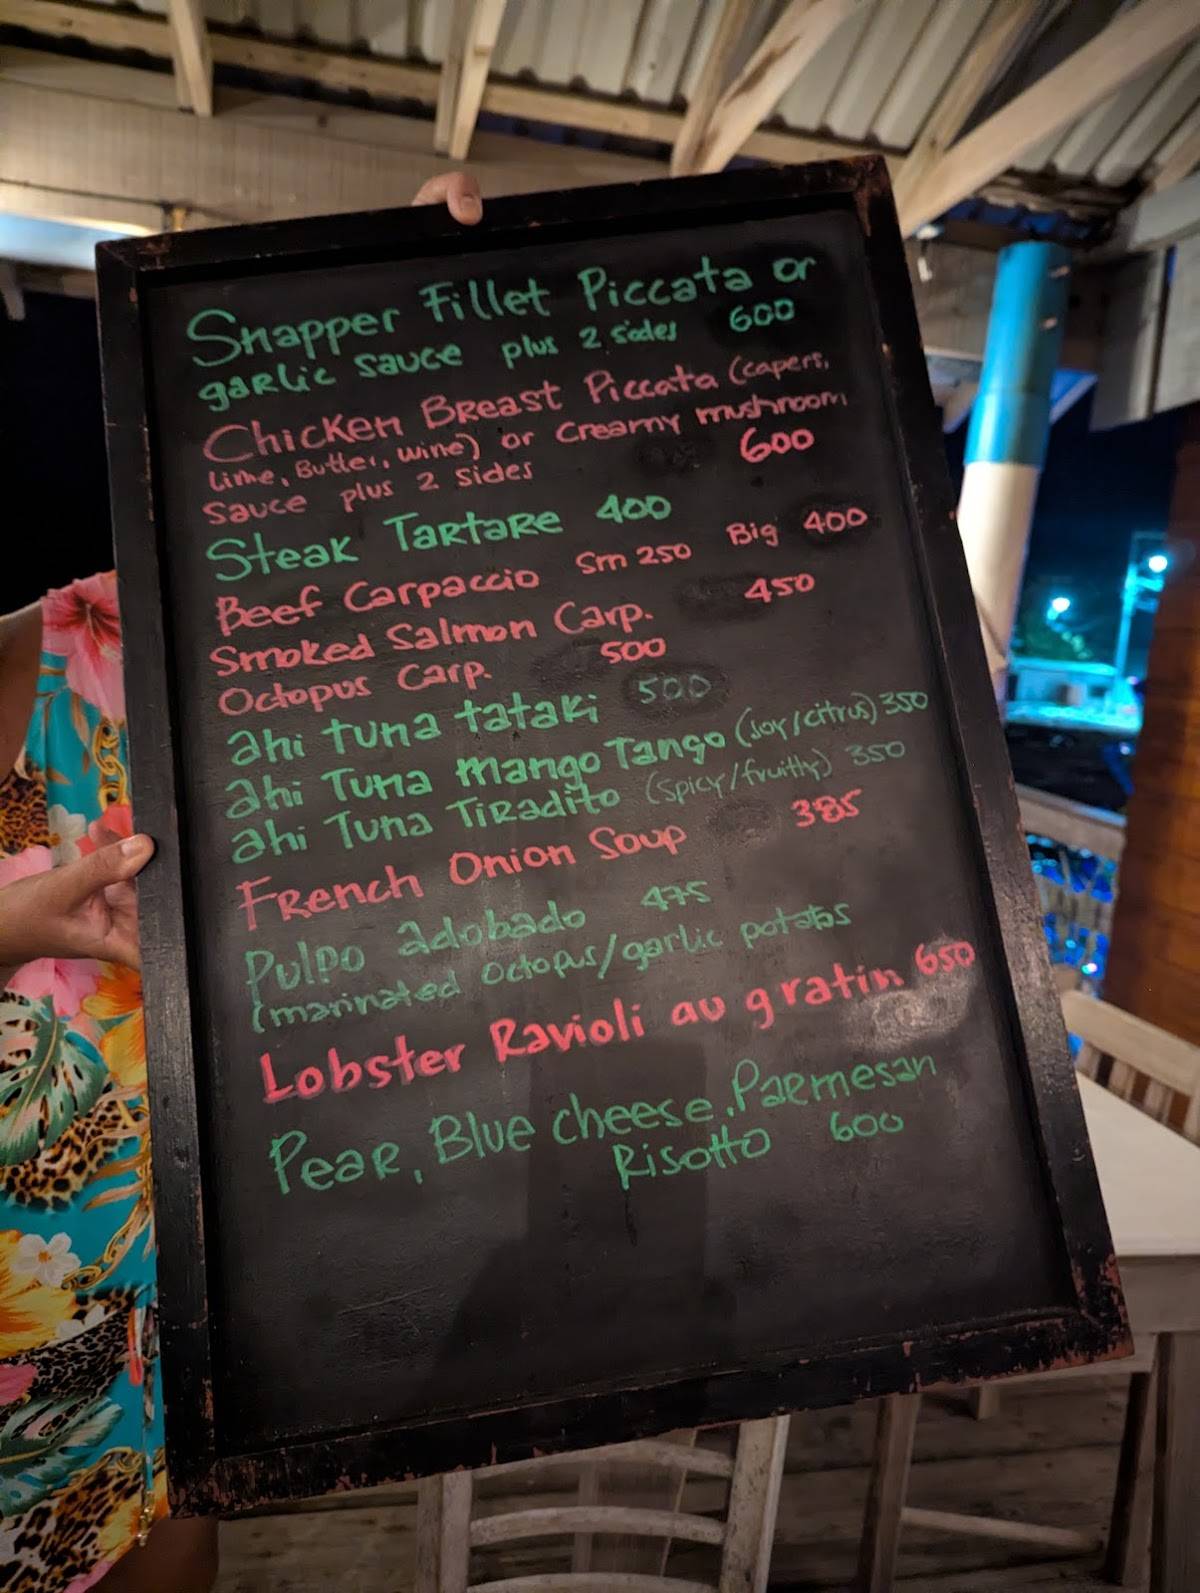 Snapper Fillet Piccata or
garlic sauce plus 2 sides 600
Chicken Breast Piccata (capers,
lime, Butter, wine) or creamy mushroom
sauce plus 2 sides 600
Steak Tartare 400
Beef Carpaccio Sm 250 Big 400
Smoked Salmon Carp. 450
Octopus Carp. 500
ahi tuna tataki 500
ahi Tuna mango Tango (soy/citrus) 350
ahi Tuna Tiradito (spicy/fruitly) 350
French Onion Soup 385
Pulpo adobado 475
(marinated octopus/garlic potatos
Lobster Ravioli au gratin 650
Pear, Blue cheese, Parmesan
Risotto 600